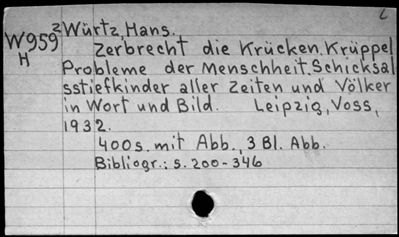 L
W959² Würtz, Hans.
H Zerbrecht die Krücken. Krüppel
Probleme der Menschheit. Schicksal
sstiefkinder aller Zeiten und Völker
in Wort und Bild. Leipzig, Voss,
1932.
400s. mit Abb., 3 Bl. Abb.
Bibliogr.: s. 200-346